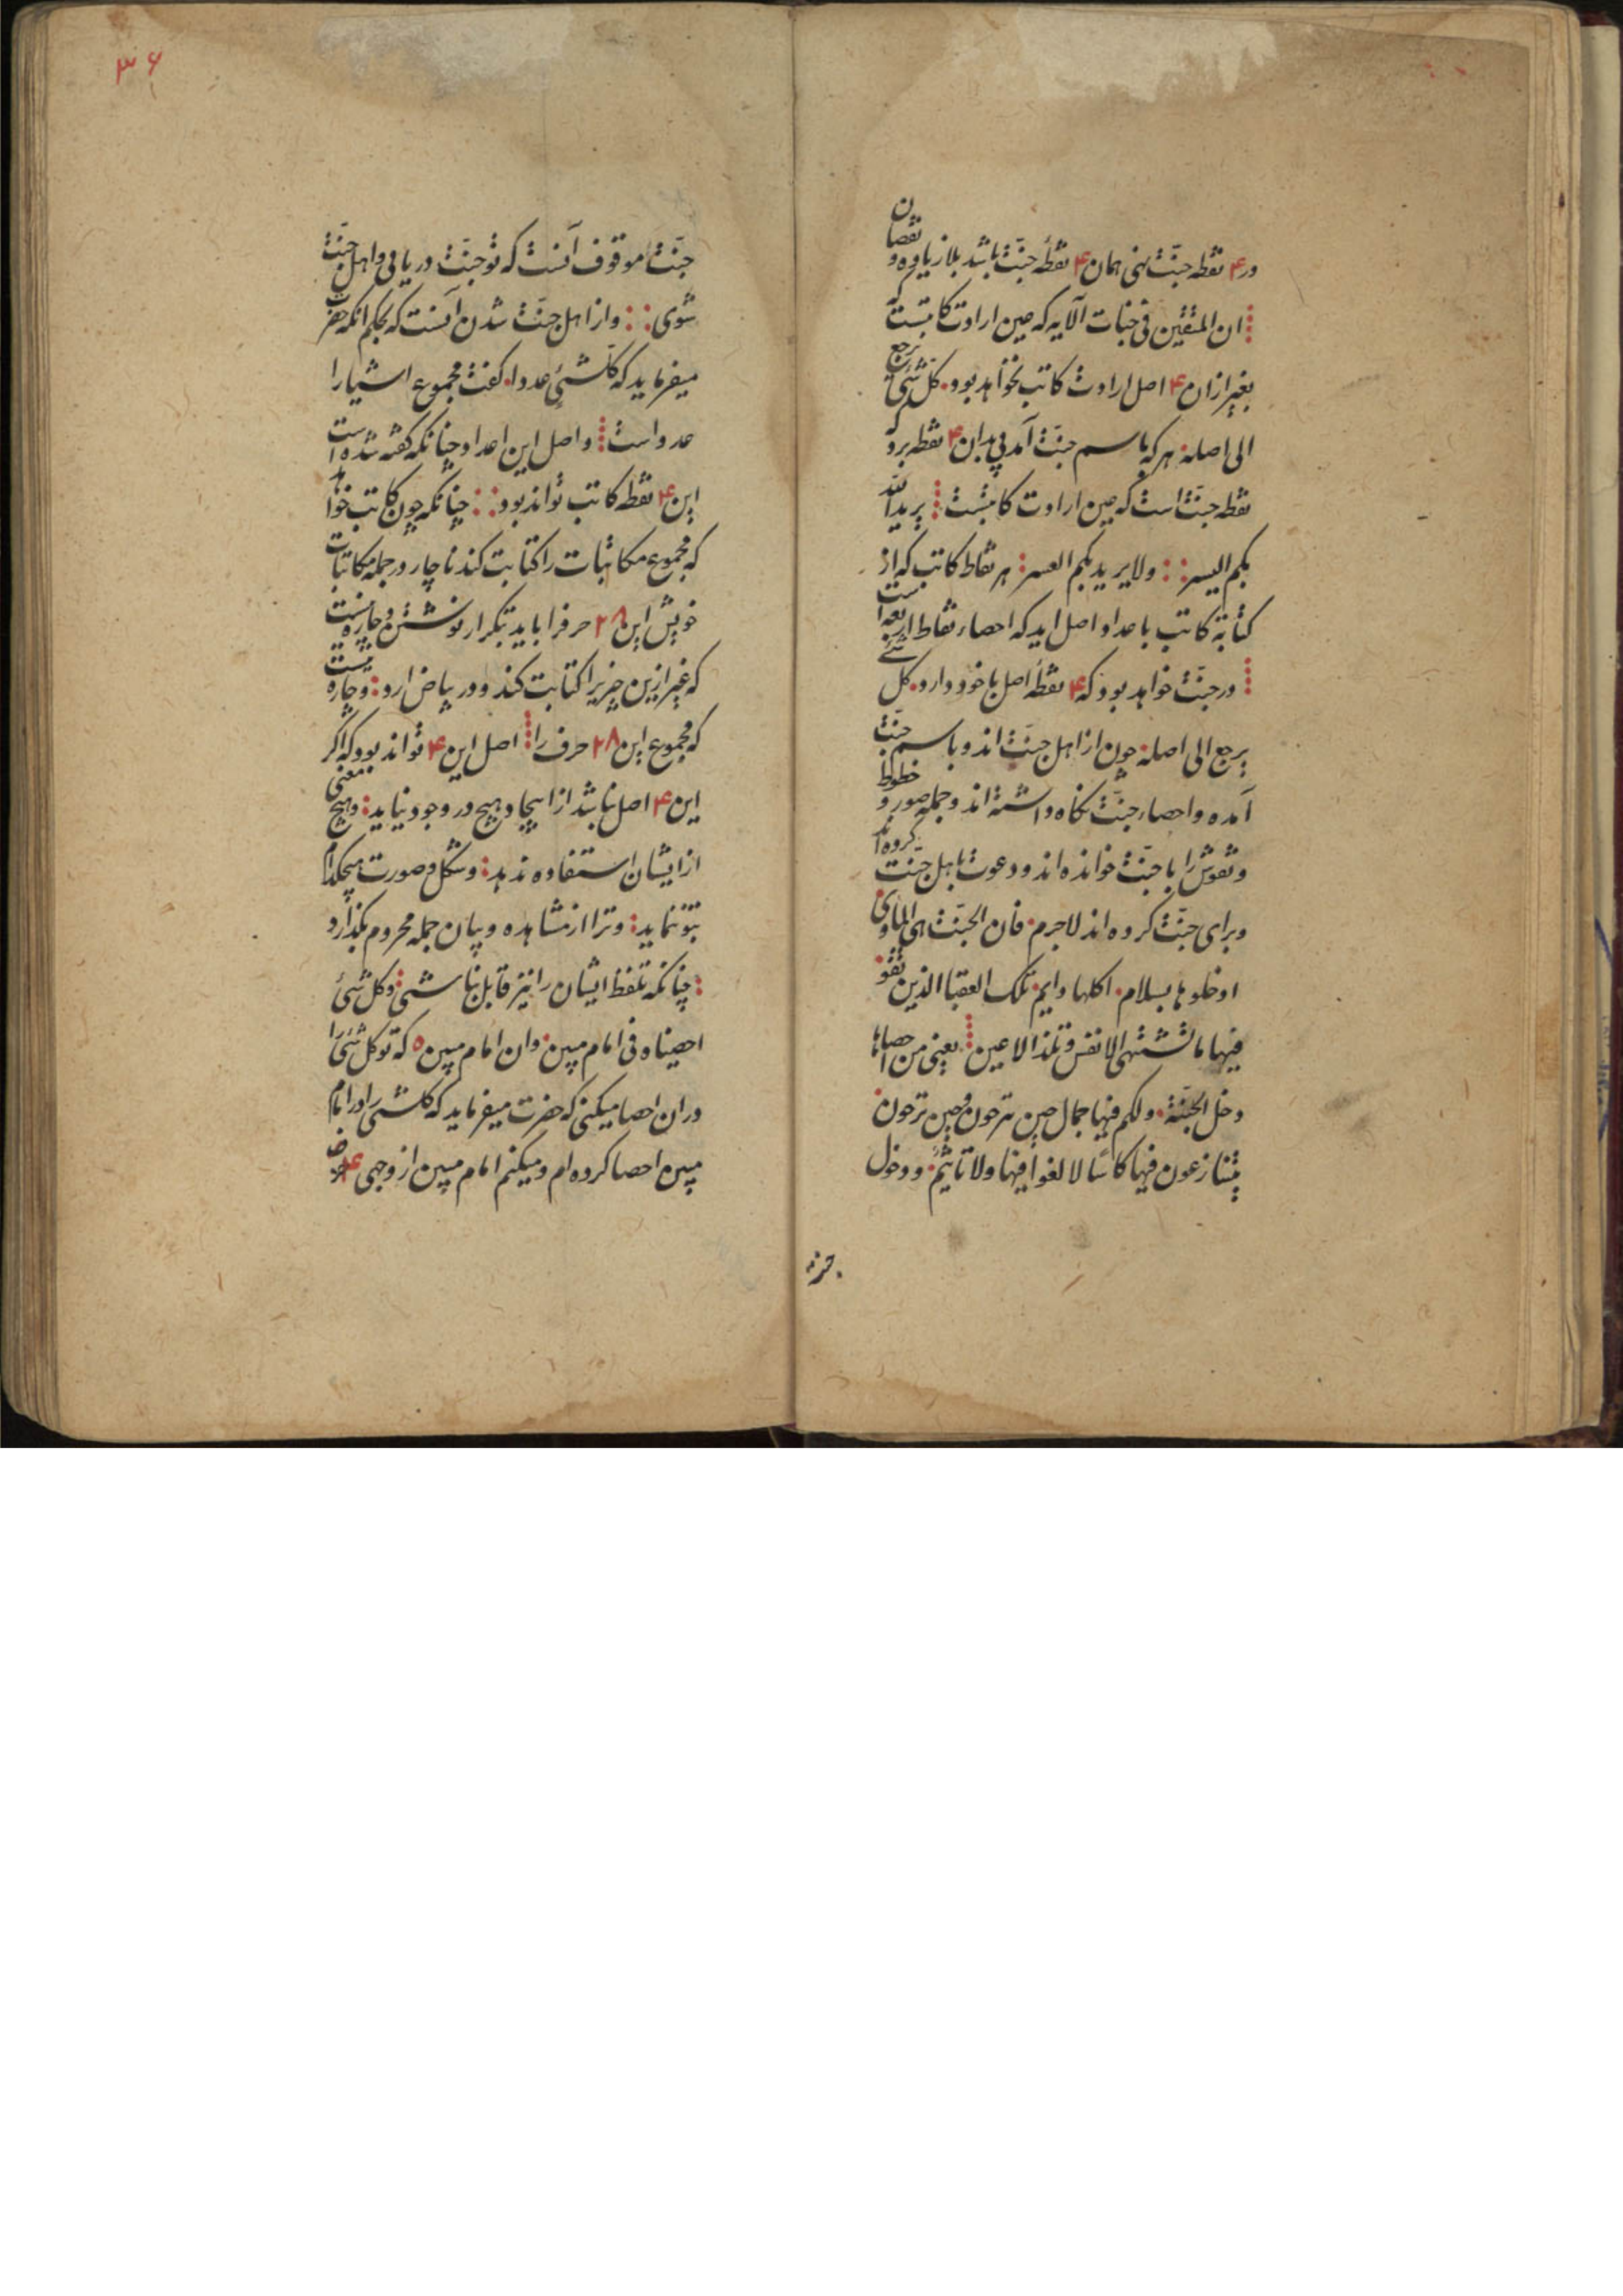 در ۴ نقطه جنّت نهی همان ۴ نقطهٔ جنّت باشد بلا زیاده و نقصان
ان المتقین فی جنات الآیه که عین ارادت کاتبست که
بغیر از ان ۴ اصل ارادت کاتب نخواهد بود. کل شیء یرجع
الی اصله. هر که باسم جنّت آمد پی بدان ۴ نقطه برد که
نقطه جنّت است که عین ارادت کاتبست یرید الله
بکم الیسر ولا یرید بکم العسر هر نقاط کاتب که از
کتابة کاتب باعداد اصل اید که احصاء نقاط اربعه است
در جنّت خواهد بود که ۴ نقطهٔ اصل با خود دارد. کل شیء
یرجع الی اصله. چون از اهل جنّت اند و باسم جنّت
آمده و احصاء جنّت نگاه داشته اند و جمله صور و خطوط
و نقوش را با جنّت خوانده اند و دعوت باهل جنّت کرده اند
و برای جنّت کرده اند لاجرم. فان الجنّت هی الماوی
ادخلوها بسلام. اکلها دایم. تلک العقبا الذین تقو
فیها ما تشتهی الانفس و تلذ الاعین یعنی من احصاها
دخل الجنّة. ولکم فیها جمال حین ترحون و حین ترحون
یتنازعون فیها کاسًا لا لغوا فیها ولا تاثیم. و دخول
جنّت
۳۶
جنّت موقوف آنست که تو جنّت دریابی و اهل جنّت
شوی و از اهل جنّت شدن آنست که بحکم انکه حضرت
میفرماید که کلشیٔ عددا. کفت مجموع اشیا را
عدد است و اصل این اعداد چنانکه کفته شده است
این ۴ نقطه کاتب تواند بود چنانکه چون کاتب خواهد
که مجموع مکاتبات را کتابت کند ناچار در جمله مکاتبات
خویش این ۲۸ حرفرا باید تکرار نوشتن و چاره نیست
که غیر ازین چیزیرا کتابت کند و در بیاض ارد و چاره نیست
که مجموع این ۲۸ حرف را اصل این ۴ تواند بود که اکر
این ۴ اصل نباشد از ایجاد هیچ در وجود نیاید و هیچ معنی
از ایشان استفاده ندهد و شکل و صورت هیچکدام
بتو ننماید و ترا از مشاهده و بیان جمله محروم بکذارد
چنانکه تلفظ ایشان را نیز قابل نباشی و کل شیٔ
احصیناه فی امام مبین و ان امام مبین ۵ که تو کل شیٔ را
دران احصا میکنی که حضرت میفرماید که کلشی را در امام
مبین احصا کرده ام و میکنم امام مبین از وجهی ۴